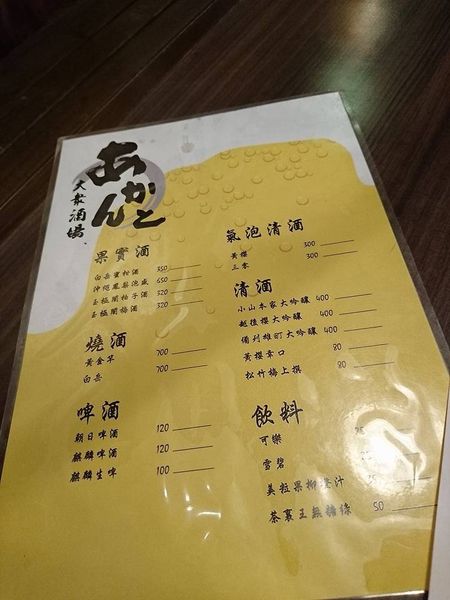 あかとん
大衆酒場.
果實酒
白岳蜜柚酒 350
沖繩鳳梨泡盛 650
玉極閣柚子酒 320
玉極閣梅酒 320
燒酒
黃金羊 700
白岳 700
啤酒
朝日啤酒 120
麒麟啤酒 120
麒麟生啤 100
氣泡清酒
黃櫻 300
三零 300
清酒
小山本家大吟釀 400
越後櫻大吟釀 400
備列雄町大吟釀 400
黃櫻辛口 80
松竹梅上撰 80
飲料
可樂 25
雪碧
美粒果柳橙汁
茶裏王無糖綠 50